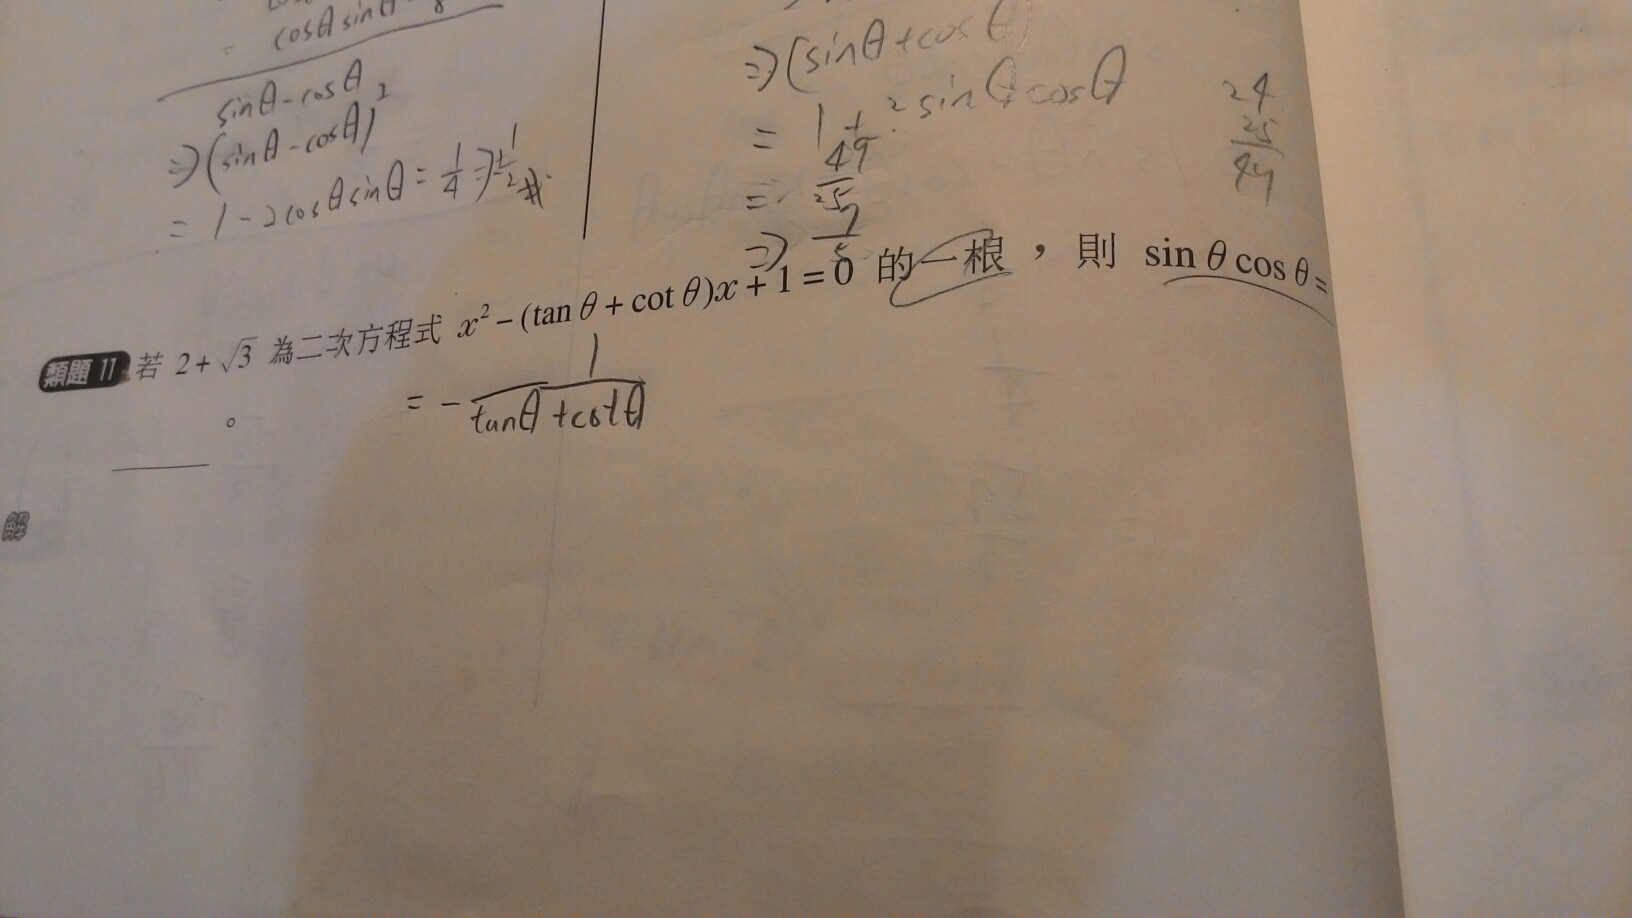 cosθ sinθ
=
sinθ - cosθ
⇒ (sinθ - cosθ)²
= 1 - 2cosθ sinθ = 1/4 ⇒ ±1/2 #
⇒ (sinθ + cosθ)
= 1 + 2 sinθ cosθ
= 49/25
⇒ 7/5
24
25
49
類題 11 若 2 + √3 為二次方程式 x² - (tan θ + cot θ)x + 1 = 0 的一根，則 sin θ cos θ =
。
= - 1/(tanθ + cotθ)
解